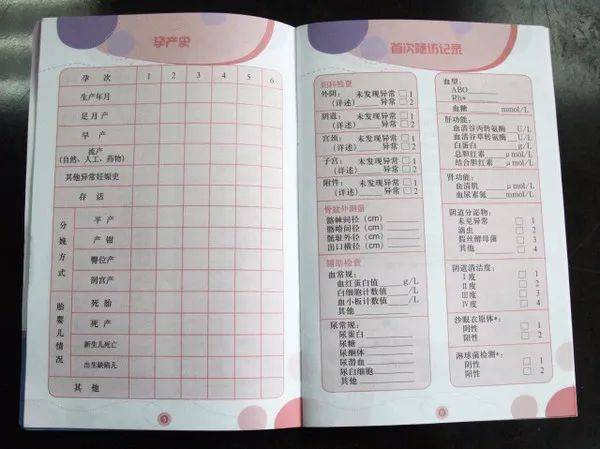 孕产史
孕 次 1 2 3 4 5 6
生产年月
足月产
早 产
流产
(自然，人工，药物)
其他异常妊娠史
存 活
分娩方式
平 产
产 钳
臀位产
剖宫产
胎婴儿情况
死 胎
死 产
新生儿死亡
出生缺陷儿
其 他
首次随访记录
妇科检查
外阴： 未发现异常 □ 1
(详述) 异常 □ 2
阴道： 未发现异常 □ 1
(详述) 异常 □ 2
宫颈： 未发现异常 □ 1
(详述) 异常 □ 2
子宫： 未发现异常 □ 1
(详述) 异常 □ 2
附件： 未发现异常 □ 1
(详述) 异常 □ 2
骨盆外测量
髂棘间径（cm）
髂嵴间径（cm）
骶耻外径（cm）
出口横径（cm）
辅助检查
血常规：
血红蛋白值 g/L
白细胞计数值 /L
血小板计数值 /L
其他
尿常规：
尿蛋白
尿糖
尿酮体
尿潜血
尿白细胞
其他
血型：
ABO
Rh*
血糖 mmol/L
肝功能：
血清谷丙转氨酶 U/L
血清谷草转氨酶 U/L
白蛋白 g/L
总胆红素 μ mol/L
结合胆红素 μ mol/L
肾功能：
血清肌 μ mol/L
血尿素氮 mmol/L
阴道分泌物：
未见异常 □ 1
滴虫 □ 2
假丝酵母菌 □ 3
其他 □ 4
阴道清洁度：
Ⅰ度 □ 1
Ⅱ度 □ 2
Ⅲ度 □ 3
Ⅳ度 □ 4
沙眼衣原体*：
阴性 □ 1
阳性 □ 2
淋球菌检测*：
阴性 □ 1
阳性 □ 2